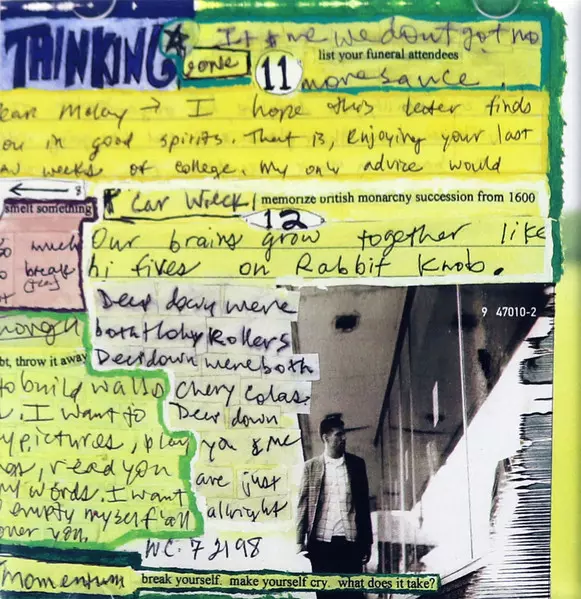 THINKING
gone
It & me we don't got no
list your funeral attendees
11
more sauce
ear Molay → I hope this letter finds
ou in good spirits. That is, enjoying your last
weeks of college. My only advice would
8
smell something
Car Wreck
memorize british monarchy succession from 1600
12
so much
to break
(free)
Our brains grow together like
hi fives on Rabbit Knob.
Deep down were
both Holy Rollers
Deep down were both
Chery Colas.
Deep down
you & me
are just
alright
nough
bt, throw it away
to build walls
I want to
y pictures, play
read you
my words. I want
empty myself all
over you.
WC. 7 2198
9 47010-2
momentum
break yourself. make yourself cry. what does it take?